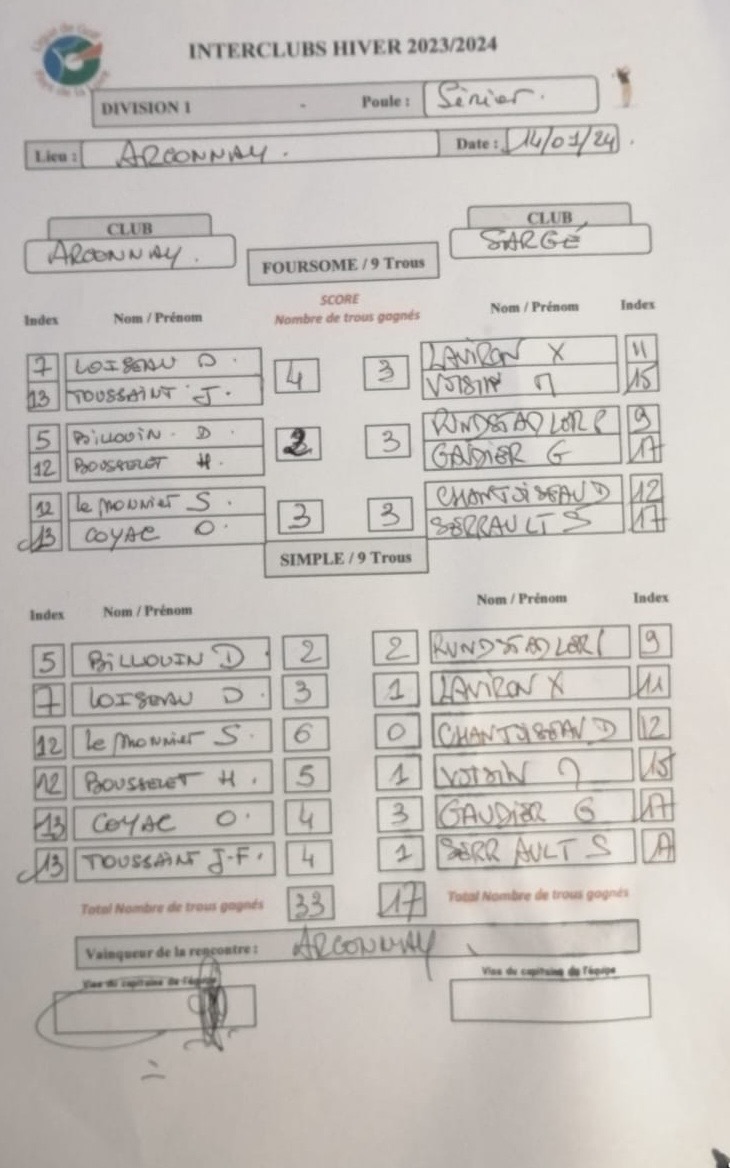 Ligue de Golf
Pays de la Loire
INTERCLUBS HIVER 2023/2024
DIVISION 1 - Poule : Sénior.
Lieu : ARCONNAY. Date : 14/01/24.
CLUB CLUB
ARCONNAY. SARGÉ
FOURSOME / 9 Trous
SCORE
Index Nom / Prénom Nombre de trous gagnés Nom / Prénom Index
7 LOISEAU D. 4 3 LAVIRON X 11
13 TOUSSAINT J. VOISIN 15
5 BILLOUIN D. 2 3 9
12 BOUSSELET H. GAUDIER G 17
12 le MONNIER S. 3 3 CHANTOISEAU D 12
13 COYAC O. SERRAULT S 17
SIMPLE / 9 Trous
Index Nom / Prénom Nom / Prénom Index
5 BILLOUIN D 2 2 9
7 LOISEAU D. 3 1 LAVIRON X 11
12 le MONNIER S. 6 0 CHANTOISEAU D 12
12 BOUSSELET H. 5 1 VOISIN 15
13 COYAC O. 4 3 GAUDIER G 17
13 TOUSSAINT J-F. 4 1 SERRAULT S
Total Nombre de trous gagnés 33 17 Total Nombre de trous gagnés
Vainqueur de la rencontre : ARCONNAY
Visa du capitaine de l'équipe Visa du capitaine de l'équipe